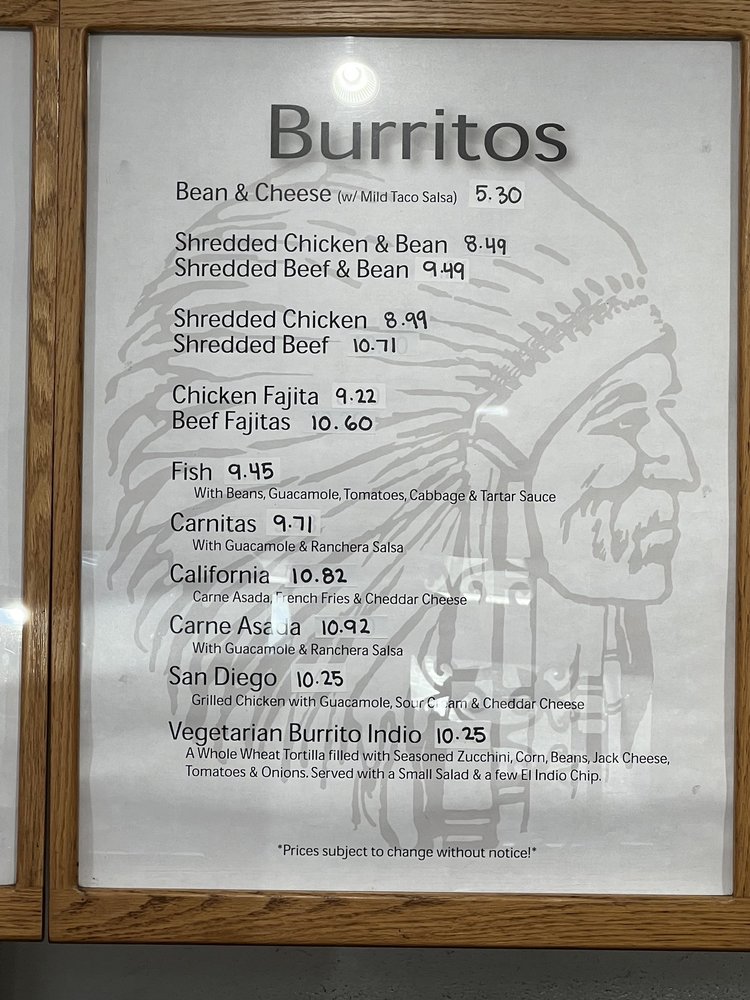 Burritos
Bean & Cheese (w/ Mild Taco Salsa) 5.30
Shredded Chicken & Bean 8.49
Shredded Beef & Bean 9.49
Shredded Chicken 8.99
Shredded Beef 10.71
Chicken Fajita 9.22
Beef Fajitas 10.60
Fish 9.45
With Beans, Guacamole, Tomatoes, Cabbage & Tartar Sauce
Carnitas 9.71
With Guacamole & Ranchera Salsa
California 10.82
Carne Asada, French Fries & Cheddar Cheese
Carne Asada 10.92
With Guacamole & Ranchera Salsa
San Diego 10.25
Grilled Chicken with Guacamole, Sour Cream & Cheddar Cheese
Vegetarian Burrito Indio 10.25
A Whole Wheat Tortilla filled with Seasoned Zucchini, Corn, Beans, Jack Cheese,
Tomatoes & Onions. Served with a Small Salad & a few El Indio Chip.
*Prices subject to change without notice!*